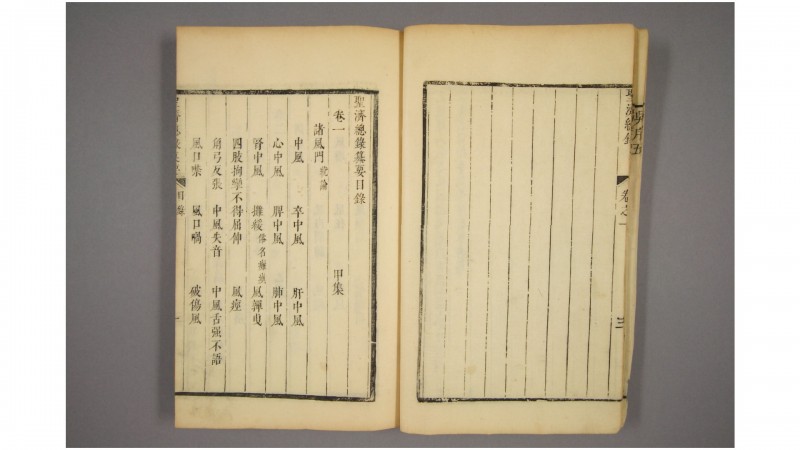 濟總錄
卷之一
三
聖濟總錄纂要目錄
卷一 甲集
諸風門 統論
中風 卒中風 肝中風
心中風 脾中風 肺中風
腎中風 攤緩 俗名癱瘓 風嚲曳
四肢拘攣不得屈伸 風痙
角弓反張 中風失音 中風舌强不語
風口噤 風口喎 破傷風
目錄
一